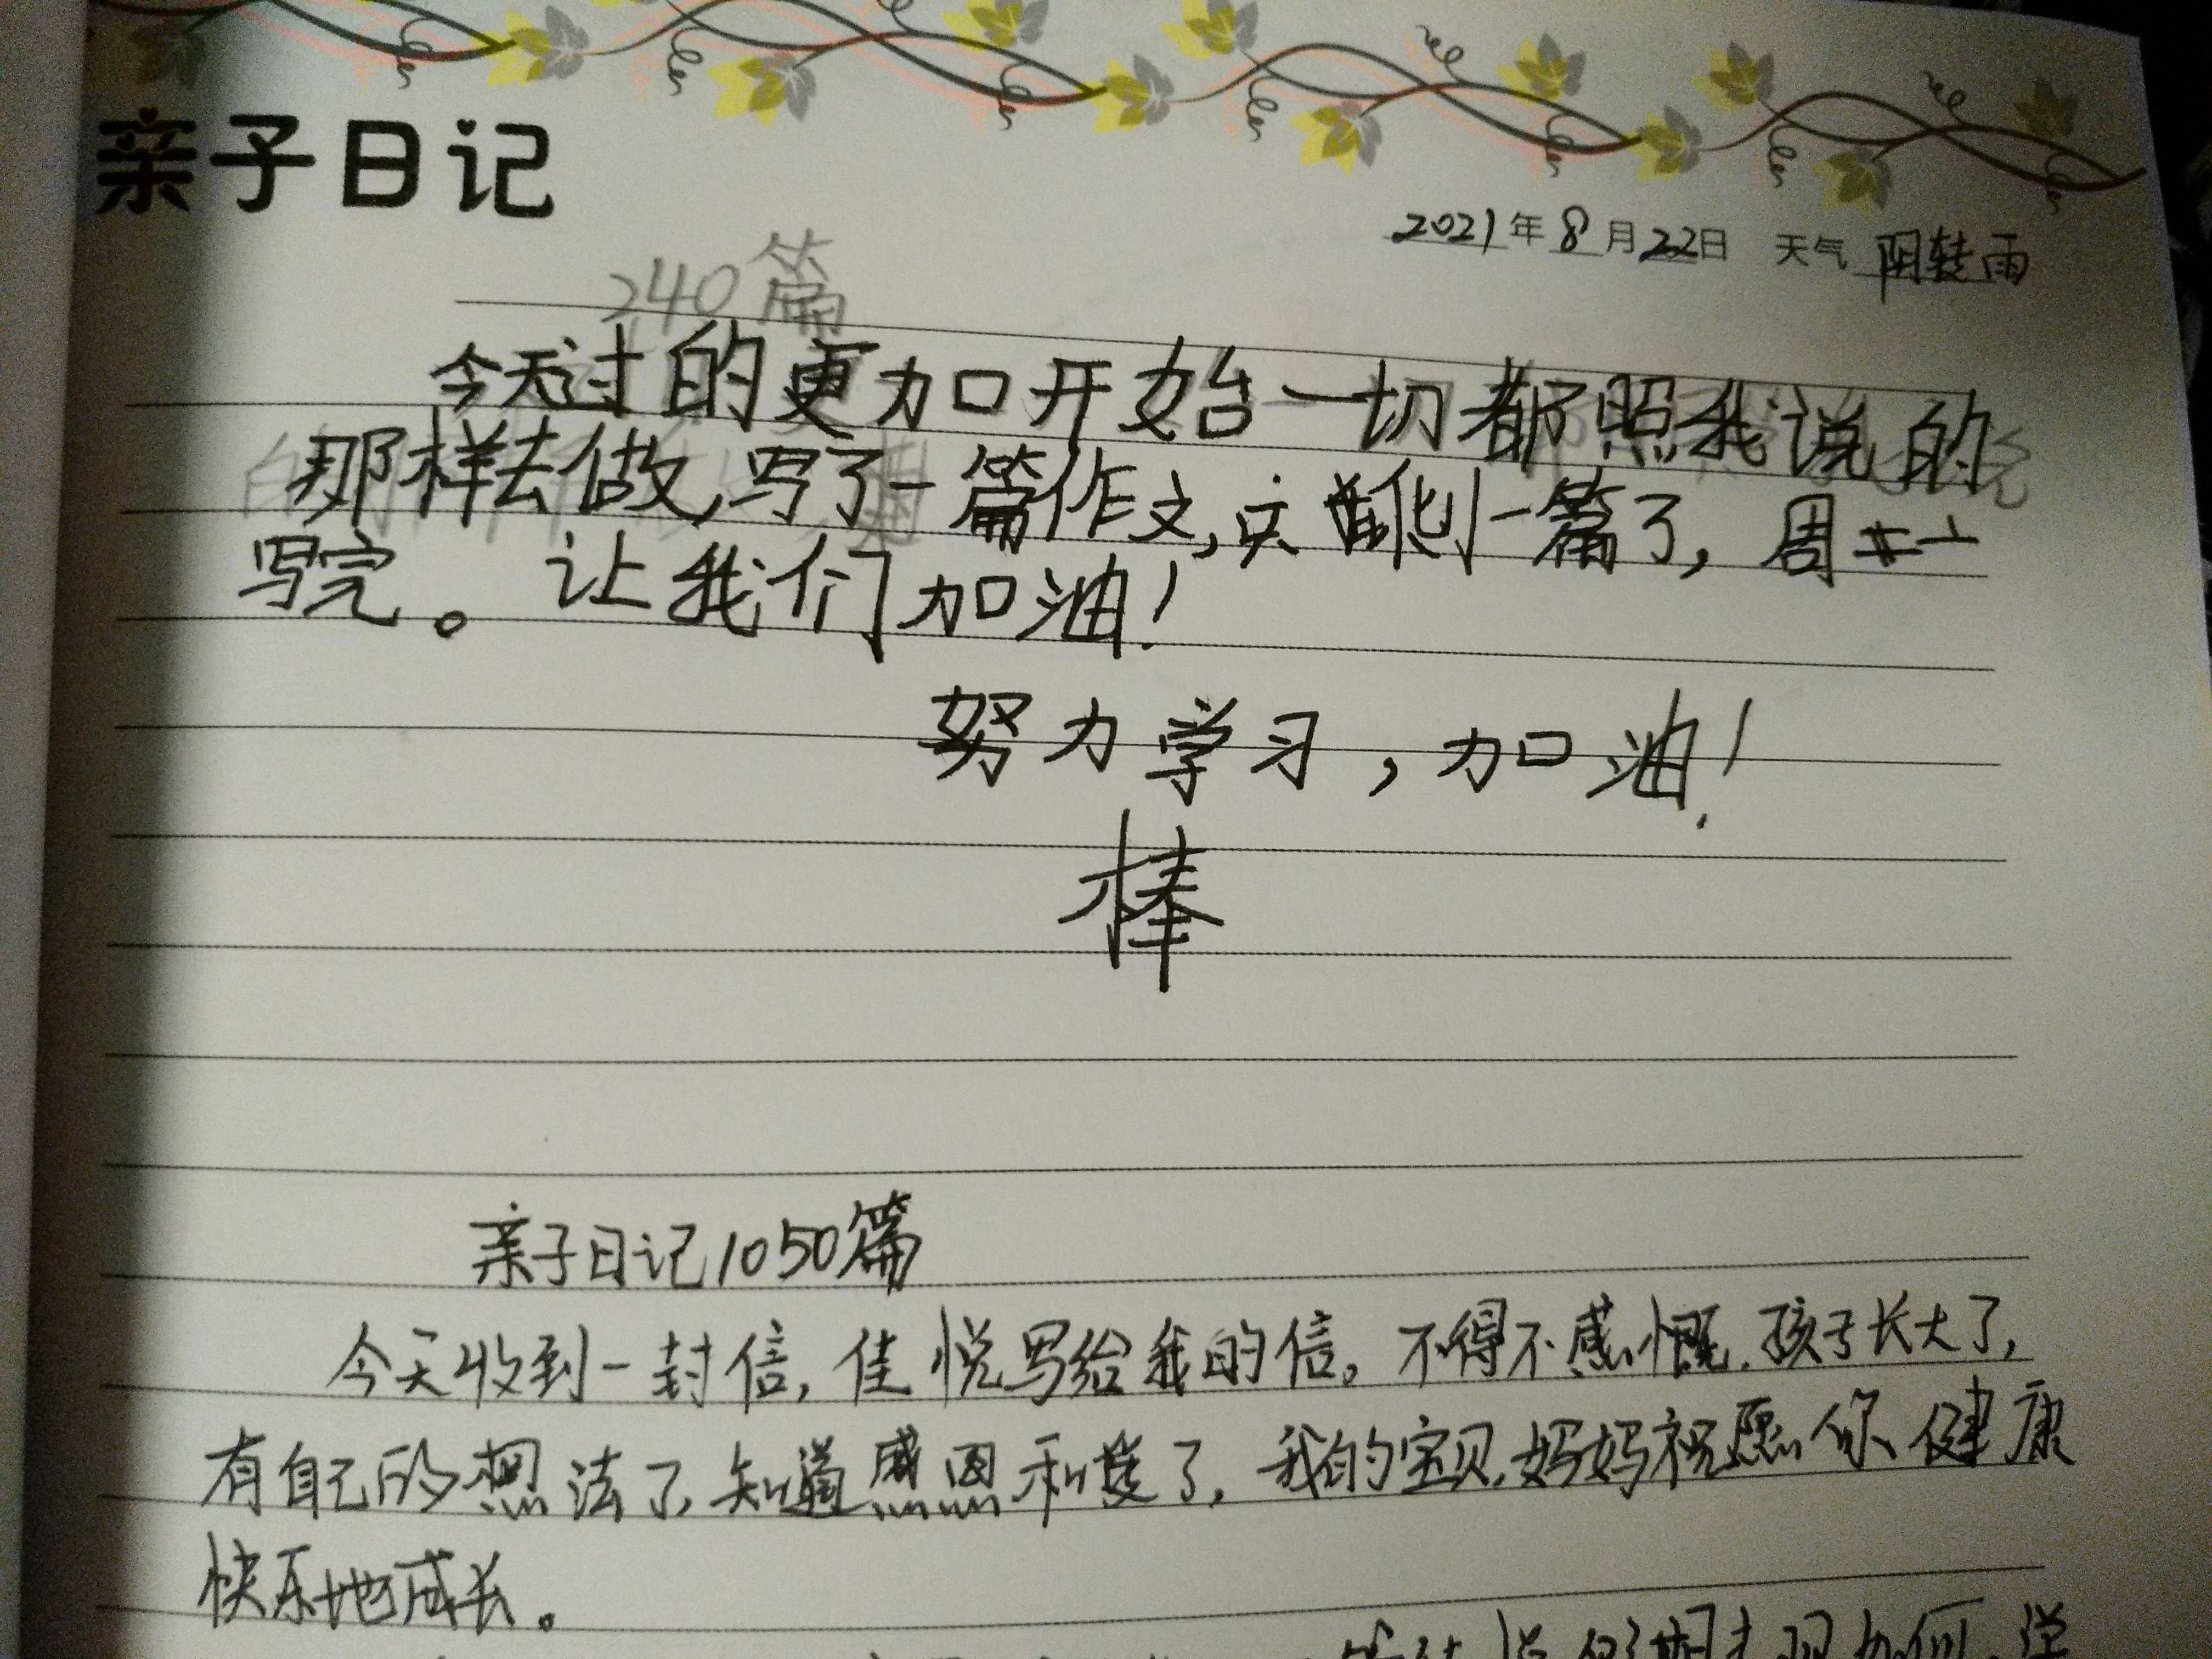 亲子日记
2021年8月22日 天气 阴转雨
240篇
今天过的更加开始一切都照我说的
那样去做,写了一篇作文,只一篇了,周
写完。让我们加油!
努力学习,加油!
棒
亲子日记1050篇
今天收到一封信,佳悦写给我的信。不得不感慨.孩子长大了,
有自己的想法了,知道感恩和爱了,我的宝贝,妈妈祝愿你健康
快乐地成长。